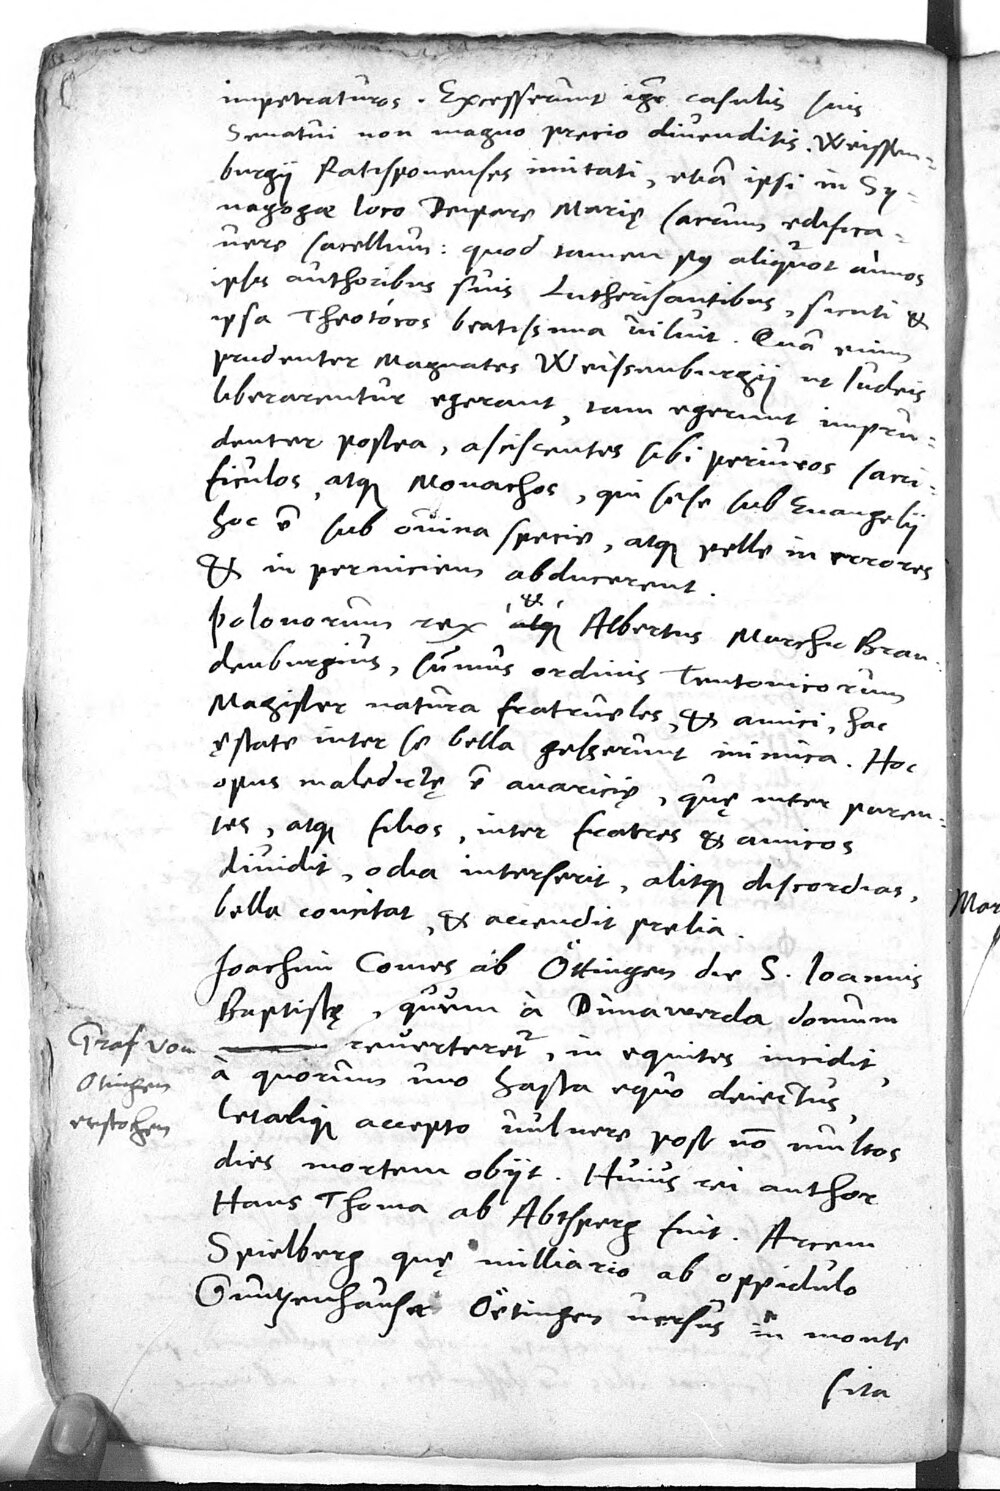 impetraturos. Excesserunt igr̃ casulis suis
Senatui non magno precio diuenditis. Weissen=
burgij Ratisponenses imitati, etiã ipsi in Sy=
nagogæ loco Deipare Marię sacrum edifica=
uere sacellum: quod tamen p9 aliquot annos
ipsis authoribus suis Lutherisantibus, sicuti &
ipsa Theotócos beatissima uiluit. Quã enim
prudenter Magnates Weissenburgij ut Iudeis
liberarentur egerant, tam egerunt impru=
denter postea, asciscentes sibi periuros sacri=
ficulos, atq; Monachos, qui sese sub Euangelij
hoc ẽ sub ouina specie, atq; pelle in errores
& in perniciem abducerent.
Polonorum rex & Albertus Marchio Bran=
denburgius, sum̃us ordinis Teutonicorum
Magister natura fratrueles, & amici, hac
ęstate inter se bella gesserunt inimica. Hoc
opus maledictę ẽ auaricię, quę inter paren=
tes, atq; filios, inter fratres & amicos
diuidit, odia interserit, alitq; discordias,
bella concitat, & accendit prelia.
Joachim Comes ab Öttingen die S. Ioannis
Baptistę, quum à Dunawerda domum
reuerteret~, in equites incidit,
à quorum uno hasta equo deiectus,
letaliq; accepto uulnere post nõ multos
dies mortem obijt. Huius rei author
Hans Thoma ab Absperg fuit. Arcem
Spielberg quę milliario ab oppidulo
Guntzenhauser Oëtingen uersus in monte
sita
Graf von
Otingen
erstochen
Mar